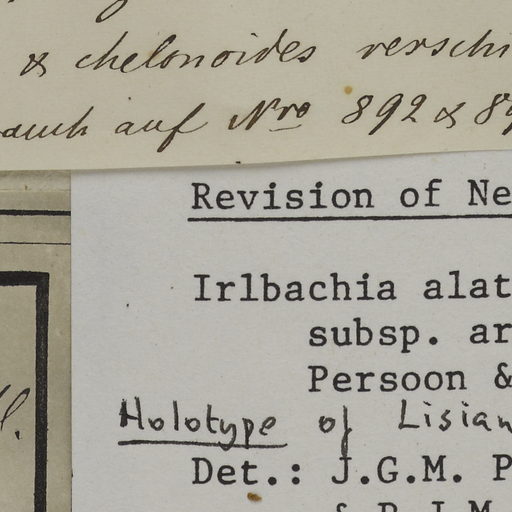 & chelonoides verschi
auch auf Nro 892 & 89
Revision of Ne
Irlbachia alat
subsp. ar
Persoon &
Holotype of Lisian
Det.: J.G.M. P
& P.J.M.